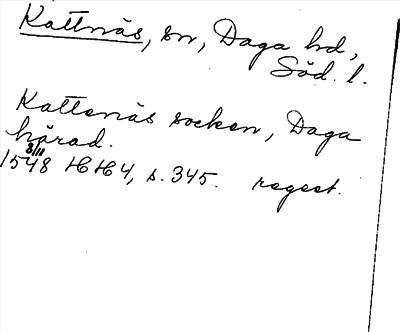 Kattnäs, sn, Daga hd,
Söd. l.
Kattenäs socken, Daga
härad.
1548 8/11 HH 4, s. 345. regest.